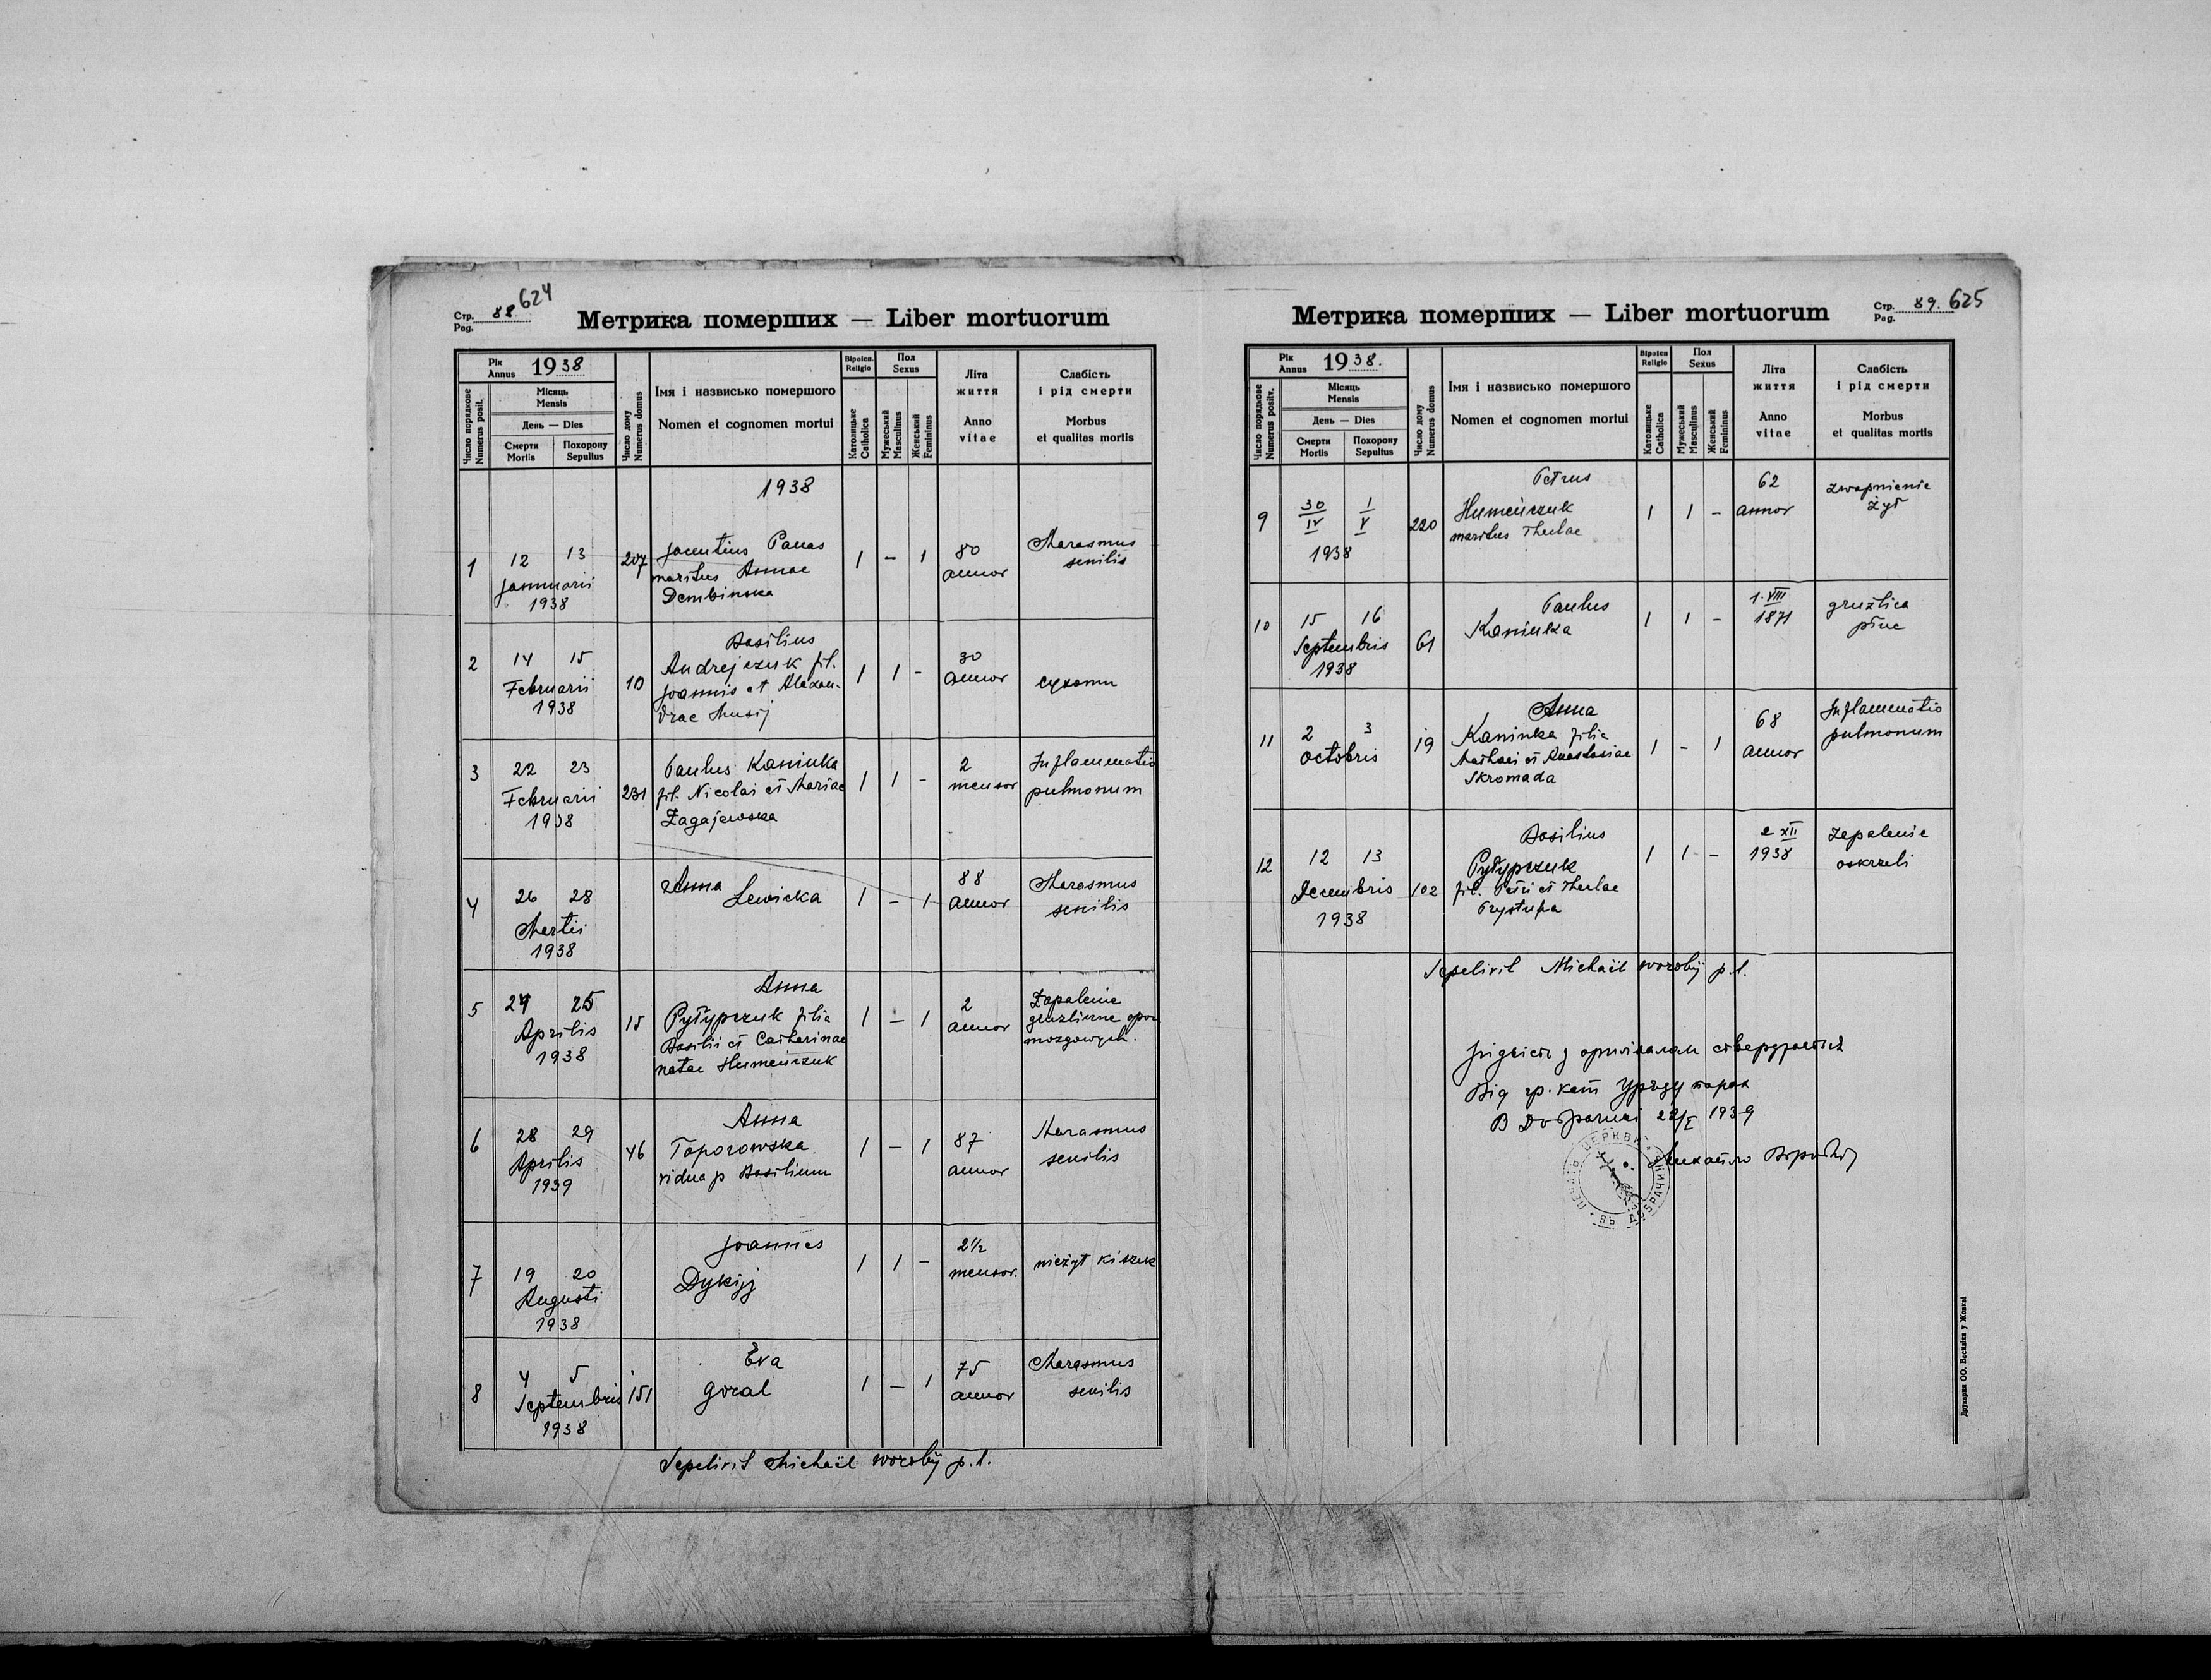 Стр. Pag. 88 624
Метрика померших — Liber mortuorum
Рік Annus 1938
Число порядкове Numerus posit.
Місяць Mensis
День — Dies
Смерти Mortis
Похорону Sepultus
Число дому Numerus domus
Імя і назвисько помершого
Nomen et cognomen mortui
Віроісп. Religio
Католицьке Catholica
Пол Sexus
Мужеський Masculinus
Женський Femininus
Літа життя
Anno vitae
Слабість і рід смерти
Morbus et qualitas mortis
1938
1 12 13 Januarii 1938 207 Jacentius Panas maritus Annae Dembinska 1 — 1 80 annor Marasmus senilis
2 14 15 Februarii 1938 10 Basilius Andrejczuk fil. Joannis et Alexandrae Musij 1 1 - 30 annor сухоти
3 22 23 Februarii 1938 231 Paulus Kaminka fil. Nicolai et Mariae Zagajewska 1 1 - 2 mensor Inflammatio pulmonum
4 26 28 Martii 1938 Anna Lewicka 1 - 1 88 annor Marasmus senilis
5 24 25 Aprilis 1938 15 Anna Pyłypczuk filia Basilii et Catharinae natae Humeńczuk 1 — 1 2 annor Zapalenie gruzliczne opon mozgowych.
6 28 29 Aprilis 1939 46 Anna Toporowska vidua p Basilium 1 — 1 87 annor Marasmus senilis
7 19 20 Augusti 1938 Joannes Dykyj 1 1 - 2½ mensor. nieżyt kiszek
8 4 5 Septembris 1938 151 Eva Goral 1 — 1 75 annor Marasmus senilis
Sepelivit Michaël Worobij p. l.
Стр. Pag. 89. 625
Метрика померших — Liber mortuorum
Рік Annus 1938.
Число порядкове Numerus positv.
Місяць Mensis
День — Dies
Смерти Mortis
Похорону Sepultus
Число дому Numerus domus
Імя і назвисько помершого
Nomen et cognomen mortui
Віроісп Religio
Католицьке Catholica
Пол Sexus
Мужеський Masculinus
Женський Femininus
Літа життя
Anno vitae
Слабість і рід смерти
Morbus et qualitas mortis
9 30/IV 1/V 1938 220 Petrus Humeńczuk maritus Theclae 1 1 - 62 annor zwapnienie żył
10 15 16 Septembris 1938 61 Paulus Kaminka 1 1 - 1.VIII 1871 gruzlica płuc
11 2 3 Octobris 19 Anna Kaminka filia Mathaei et Anastasiae Skromada 1 - 1 68 annor Inflammatio pulmonum
12 12 13 Decembris 1938 102 Basilius Pyłypczuk fil. Petri et Theclae Prystupa 1 1 - 2 XII 1938 zapalenie oskrzeli
Sepelivit Michaël Worobij p. l.
Від гр. кат Уряду парох
В Добрачині 22/I 1939
Михайло Воробій
ПЕЧАТЬ ЦЕРКВИ ВЪ ДОБРАЧИНѢ
Друкарня ОО. Василіян у Жовкві